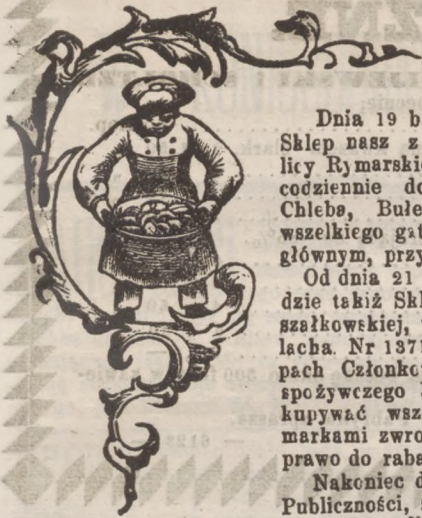 Dnia 19 b
Sklep nasz z
licy Rymarskie
codziennie do
Chleba, Bułe
wszelkiego gat
głównym, przy
Od dnia 21
dzie takiż Skl
szałkowskiej,
lacha. Nr 137
pach Członko
spożywczego
kupywać wsz
markami zwro
prawo do raba
Nakoniec d
Publiczności,